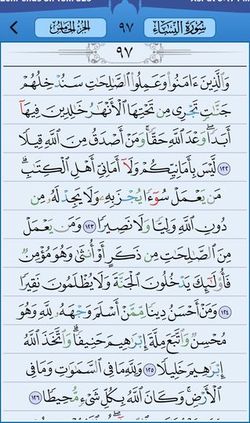 سُورَةُ النِّسَاءِ ٩٧ الجُزْءُ الخَامِسُ
٩٧
وَٱلَّذِينَ ءَامَنُوا۟ وَعَمِلُوا۟ ٱلصَّـٰلِحَـٰتِ سَنُدْخِلُهُمْ
جَنَّـٰتٍ تَجْرِى مِن تَحْتِهَا ٱلْأَنْهَـٰرُ خَـٰلِدِينَ فِيهَآ
أَبَدًا ۖ وَعْدَ ٱللَّهِ حَقًّا ۚ وَمَنْ أَصْدَقُ مِنَ ٱللَّهِ قِيلًا
١٢٢ لَّيْسَ بِأَمَانِيِّكُمْ وَلَآ أَمَانِىِّ أَهْلِ ٱلْكِتَـٰبِ ۗ
مَن يَعْمَلْ سُوٓءًا يُجْزَ بِهِۦ وَلَا يَجِدْ لَهُۥ مِن
دُونِ ٱللَّهِ وَلِيًّا وَلَا نَصِيرًا ١٢٣ وَمَن يَعْمَلْ
مِنَ ٱلصَّـٰلِحَـٰتِ مِن ذَكَرٍ أَوْ أُنثَىٰ وَهُوَ مُؤْمِنٌ
فَأُو۟لَـٰٓئِكَ يَدْخُلُونَ ٱلْجَنَّةَ وَلَا يُظْلَمُونَ نَقِيرًا
١٢٤ وَمَنْ أَحْسَنُ دِينًا مِّمَّنْ أَسْلَمَ وَجْهَهُۥ لِلَّهِ وَهُوَ
مُحْسِنٌ وَٱتَّبَعَ مِلَّةَ إِبْرَٰهِيمَ حَنِيفًا ۗ وَٱتَّخَذَ ٱللَّهُ
إِبْرَٰهِيمَ خَلِيلًا ١٢٥ وَلِلَّهِ مَا فِى ٱلسَّمَـٰوَٰتِ وَمَا فِى
ٱلْأَرْضِ ۚ وَكَانَ ٱللَّهُ بِكُلِّ شَىْءٍ مُّحِيطًا ١٢٦